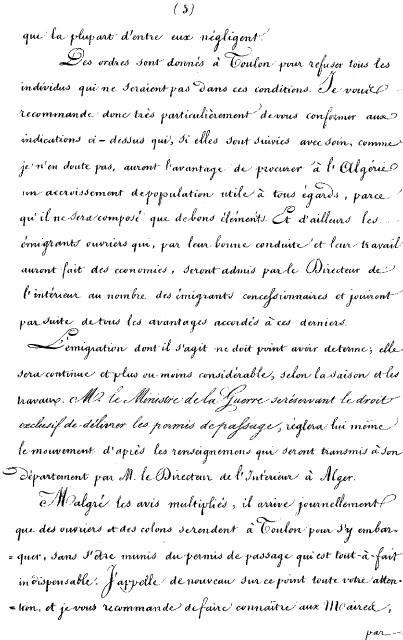 (3)
que la plupart d'entre eux négligent.
Des ordres sont donnés à Toulon pour refuser tous les
individus qui ne seraient pas dans ces conditions. Je vous
recommande donc très particulièrement de vous conformer aux
indications ci-dessus qui, si elles sont suivies avec soin, comme
je n'en doute pas, auront l'avantage de procurer à l'Algérie
un accroissement de population utile à tous égards, parce
qu'il ne sera composé que de bons éléments. Et d'ailleurs les
émigrants ouvriers qui, par leur bonne conduite et leur travail
auront fait des économies, seront admis par le Directeur de
l'intérieur au nombre des émigrants concessionnaires et jouiront
par suite de tous les avantages accordés à ces derniers.
L'émigration dont il s'agit ne doit point avoir de terme; elle
sera continue et plus ou moins considérable, selon la saison et les
travaux. Mr. le Ministre de la Guerre se réservant le droit
exclusif de délivrer les permis de passage, règlera lui même
le mouvement d'après les renseignemens qui seront transmis à son
département par M. le Directeur de l'Intérieur à Alger.
Malgré les avis multipliés, il arrive journellement
que des ouvriers et des colons se rendent à Toulon pour s'y embar-
-quer, sans s'être munis du permis de passage qui est tout-à-fait
indispensable. J'appelle de nouveau sur ce point toute votre atten-
-tion, et je vous recommande de faire connaître aux Maires,
par